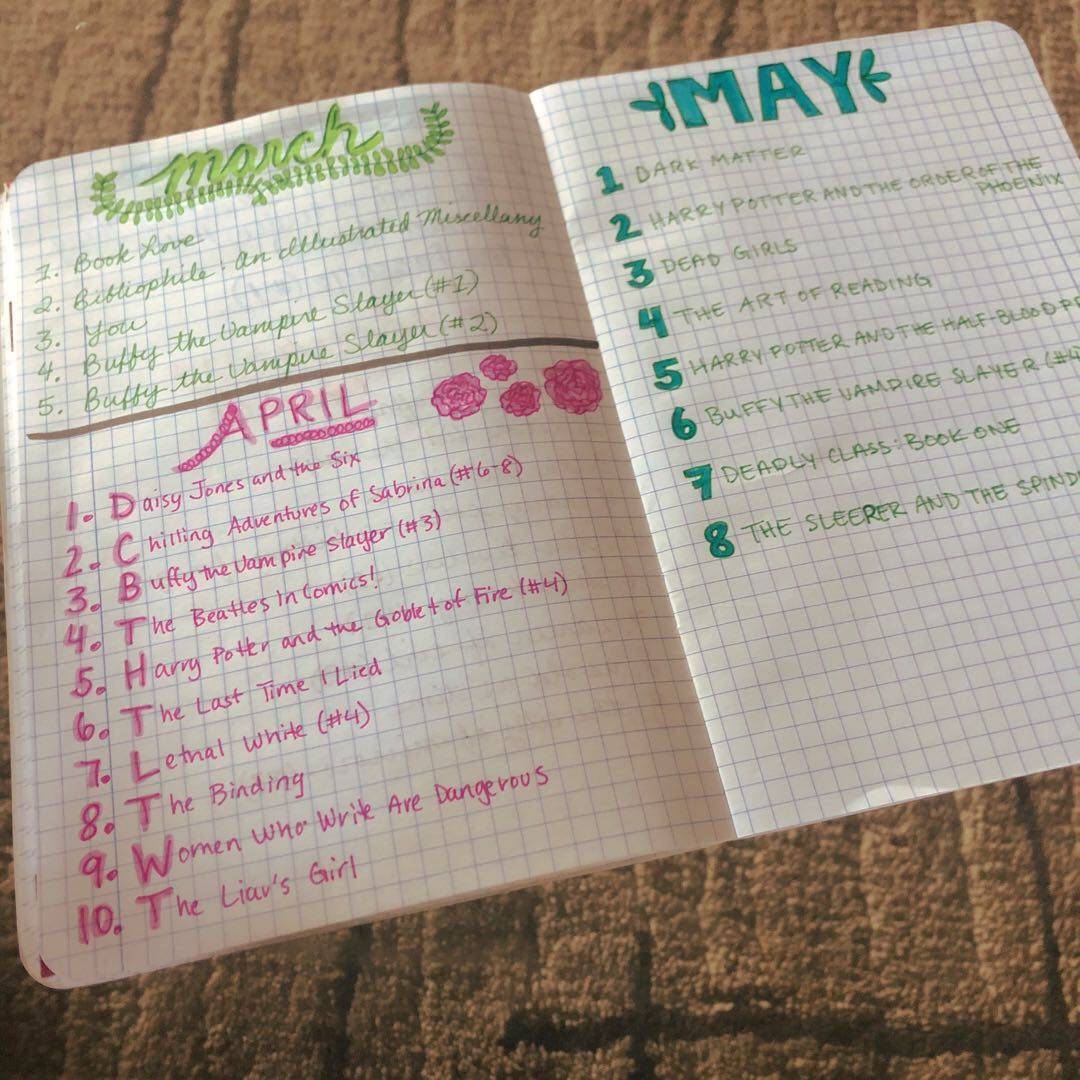 march
1. Book Love
2. Bibliophile: An Illustrated Miscellany
3. You
4. Buffy the Vampire Slayer (#1)
5. Buffy the Vampire Slayer (#2)
APRIL
1. Daisy Jones and the Six
2. Chilling Adventures of Sabrina (#6-8)
3. Buffy the Vampire Slayer (#3)
4. The Beatles in Comics!
5. Harry Potter and the Goblet of Fire (#4)
6. The Last Time I Lied
7. Lethal White (#4)
8. The Binding
9. Women Who Write Are Dangerous
10. The Liar's Girl
MAY
1 DARK MATTER
2 HARRY POTTER AND THE ORDER OF THE
PHOENIX
3 DEAD GIRLS
4 THE ART OF READING
5 HARRY POTTER AND THE HALF-BLOOD
6 BUFFY THE VAMPIRE SLAYER (#4
7 DEADLY CLASS: BOOK ONE
8 THE SLEEPER AND THE SPIND